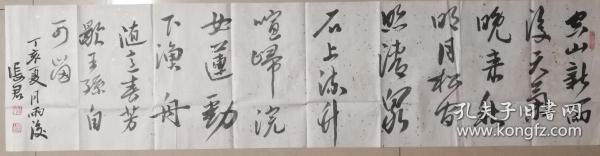 空山新雨
後天氣
晚来秋
明月松间
照清泉
石上流竹
喧歸浣
女蓮動
下漁舟
随意春芳
歇王孫自
可留
丁亥夏月雨後
孔夫子旧书网
www.kongfz.com